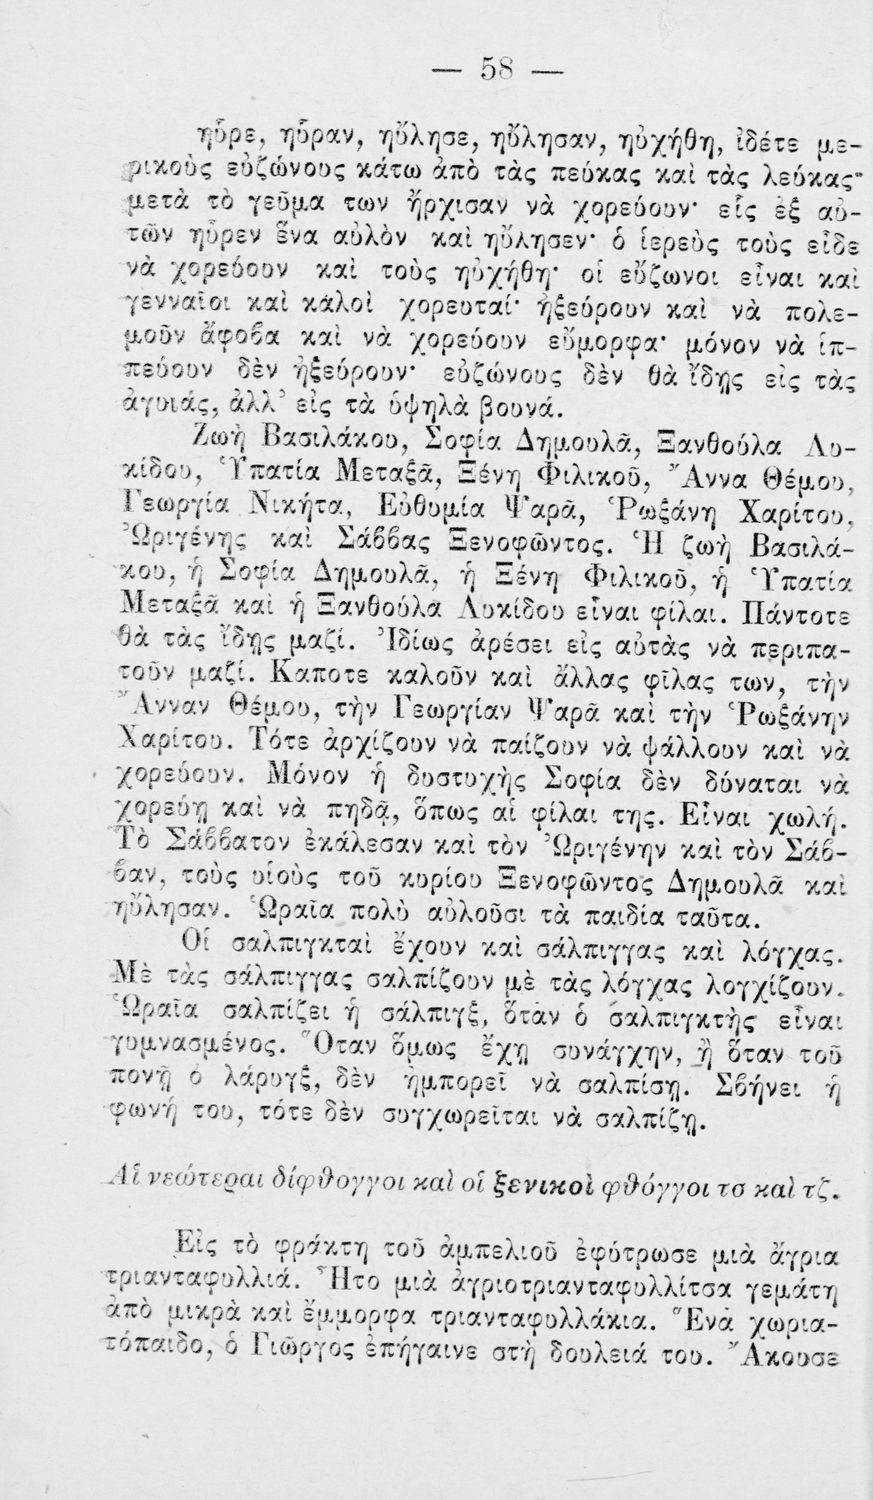 — 58 —
ηὗρε, ηὗραν, ηὔλησε, ηὔλησαν, ηὐχήθη, ἰδέτε με-
ρικοὺς εὐζώνους κάτω ἀπὸ τὰς πεύκας καὶ τὰς λεύκας·
μετὰ τὸ γεῦμα των ἤρχισαν νὰ χορεύουν· εἷς ἐξ αὐ-
τῶν ηὗρεν ἕνα αὐλὸν καὶ ηὔλησεν· ὁ ἱερεὺς τοὺς εἶδε
νὰ χορεύουν καὶ τοὺς ηὐχήθη· οἱ εὔζωνοι εἶναι καὶ
γενναῖοι καὶ καλοὶ χορευταί· ἠξεύρουν καὶ νὰ πολε-
μοῦν ἄφοβα καὶ νὰ χορεύουν εὔμορφα· μόνον νὰ ἱπ-
πεύουν δὲν ἠξεύρουν· εὐζώνους δὲν θὰ ἴδῃς εἰς τὰς
ἀγυιάς, ἀλλ' εἰς τὰ ὑψηλὰ βουνά.
Ζωὴ Βασιλάκου, Σοφία Δημουλᾶ, Ξανθούλα Λυ-
κίδου, Ὑπατία Μεταξᾶ, Ξένη Φιλικοῦ, Ἄννα Θέμου,
Γεωργία Νικήτα, Εὐθυμία Ψαρᾶ, Ῥωξάνη Χαρίτου,
Ὠριγένης καὶ Σάββας Ξενοφῶντος. Ἡ ζωὴ Βασιλά-
κου, ἡ Σοφία Δημουλᾶ, ἡ Ξένη Φιλικοῦ, ἡ Ὑπατία
Μεταξᾶ καὶ ἡ Ξανθούλα Λυκίδου εἶναι φίλαι. Πάντοτε
θὰ τὰς ἴδῃς μαζί. Ἰδίως ἀρέσει εἰς αὐτὰς νὰ περιπα-
τοῦν μαζί. Καποτε καλοῦν καὶ ἄλλας φῖλας των, τὴν
Ἄνναν Θέμου, τὴν Γεωργίαν Ψαρᾶ καὶ τὴν Ῥωξάνην
Χαρίτου. Τότε ἀρχίζουν νὰ παίζουν νὰ ψάλλουν καὶ νὰ
χορεύουν. Μόνον ἡ δυστυχὴς Σοφία δὲν δύναται νὰ
χορεύῃ καὶ νὰ πηδᾷ, ὅπως αἱ φίλαι της. Εἶναι χωλή.
Τὸ Σάββατον ἐκάλεσαν καὶ τὸν Ὠριγένην καὶ τὸν Σάβ-
βαν, τοὺς υἱοὺς τοῦ κυρίου Ξενοφῶντος Δημουλᾶ καὶ
ηὔλησαν. Ὡραῖα πολὺ αὐλοῦσι τὰ παιδία ταῦτα.
Οἱ σαλπιγκταὶ ἔχουν καὶ σάλπιγγας καὶ λόγχας.
Μὲ τὰς σάλπιγγας σαλπίζουν μὲ τὰς λόγχας λογχίζουν.
Ὡραῖα σαλπίζει ἡ σάλπιγξ, ὅταν ὁ σαλπιγκτὴς εἶναι
γυμνασμένος. Ὅταν ὅμως ἔχῃ συνάγχην, ἢ ὅταν τοῦ
πονῇ ὁ λάρυγξ, δὲν ἠμπορεῖ νὰ σαλπίσῃ. Σβήνει ἡ
φωνή του, τότε δὲν συγχωρεῖται νὰ σαλπίζῃ.
Αἱ νεώτεραι δίφθογγοι καὶ οἱ ξενικοὶ φθόγγοι τσ καὶ τζ.
Εἰς τὸ φράκτη τοῦ ἀμπελιοῦ ἐφύτρωσε μιὰ ἄγρια
τριανταφυλλιά. Ἦτο μιὰ ἀγριοτριανταφυλλίτσα γεμάτη
ἀπὸ μικρὰ καὶ ἔμμορφα τριανταφυλλάκια. Ἕνα χωρια-
τόπαιδο, ὁ Γιῶργος ἐπήγαινε στὴ δουλειά του. Ἄκουσε